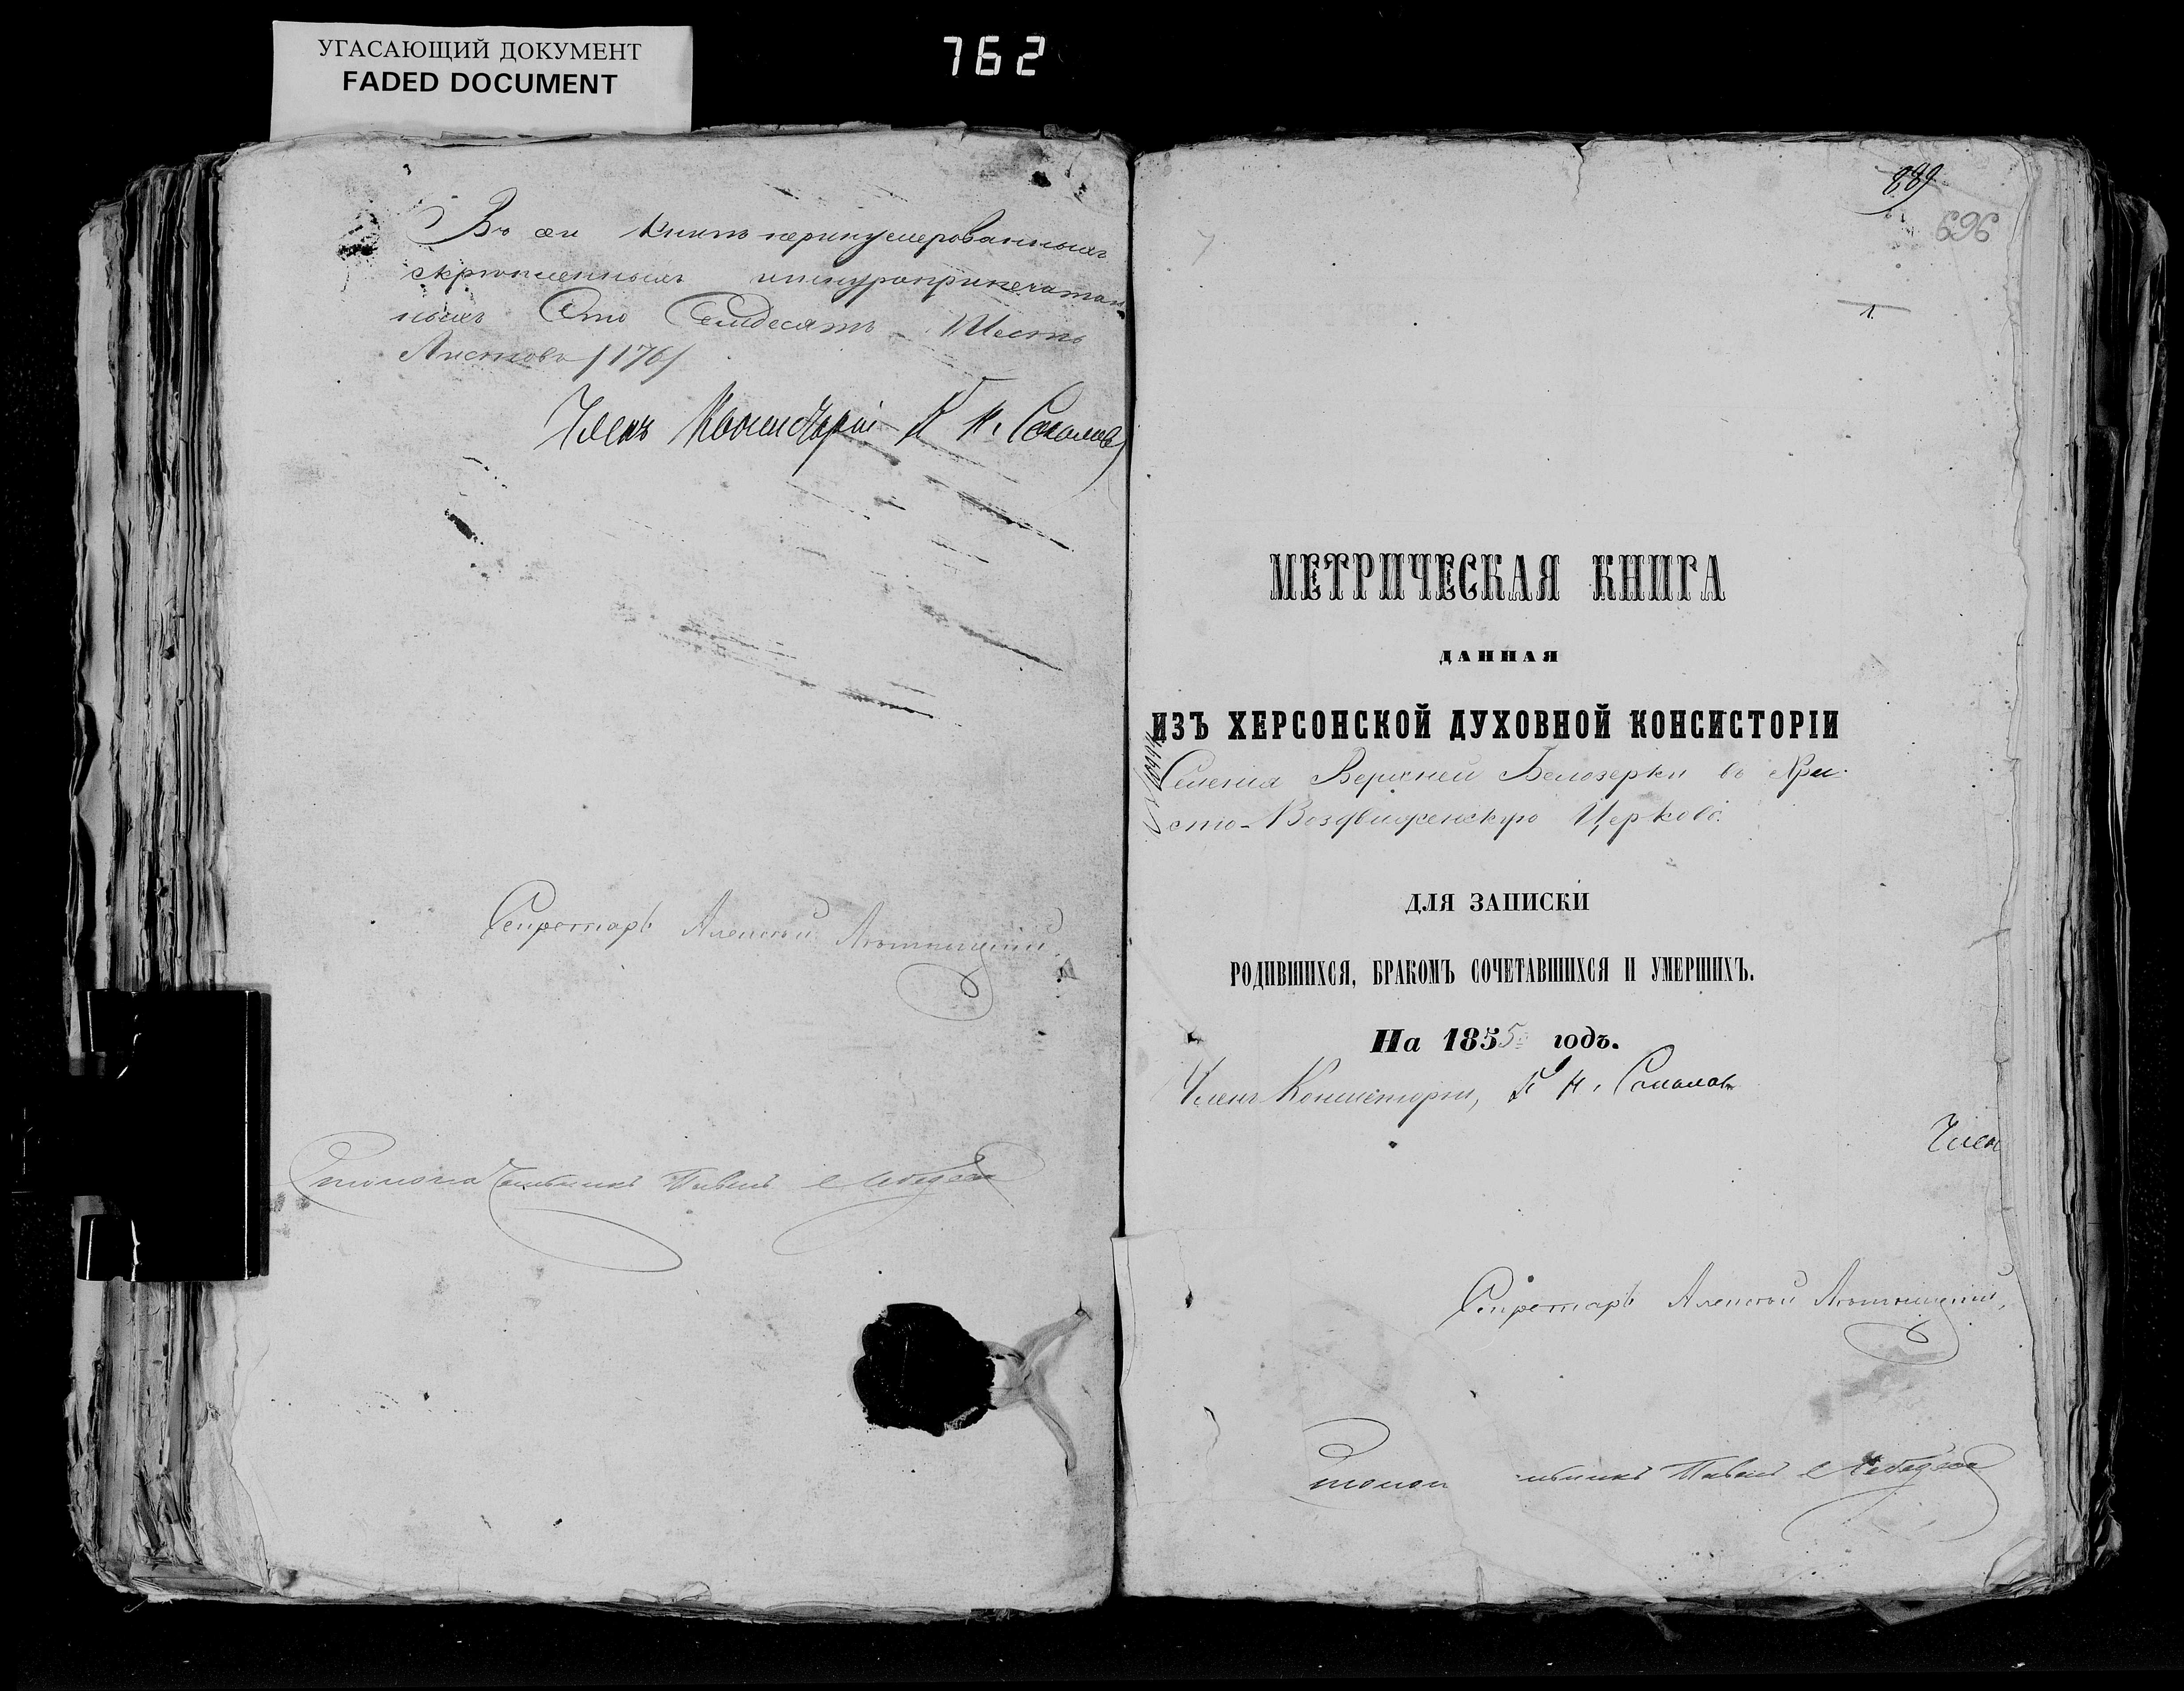 УГАСАЮЩИЙ ДОКУМЕНТ
FADED DOCUMENT
762
Въ сей Книгѣ перенумерованныхъ
скрѣпленныхъ шнуроприпечатан
ныхъ Сто Семдесятъ Шесть
Листовъ /176/
Членъ Консисторіи П. Н. Соколовъ
Секретарь Алексѣй
Столоначальникъ Павелъ Лебедевъ
889
696
1.
МЕТРИЧЕСКАЯ КНИГА
ДАННАЯ
ИЗЪ ХЕРСОНСКОЙ ДУХОВНОЙ КОНСИСТОРІИ
Селенія Верхней Белозерки въ Кре
сто-Воздвиженскую Церковь.
ДЛЯ ЗАПИСКИ
РОДИВШИХСЯ, БРАКОМЪ СОЧЕТАВШИХСЯ И УМЕРШИХЪ.
На 1855 годъ.
Членъ Консисторіи, П. Н. Соколовъ
Член
Секретарь Алексѣй
Столон льникъ Павелъ Лебедевъ